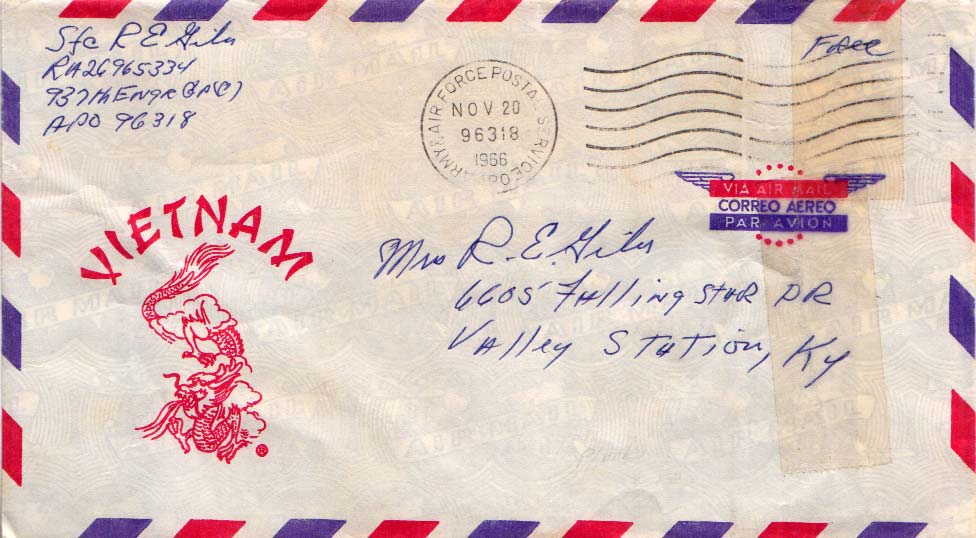 Sfc R E Giles
RA26965334
937th Engr GP(C)
APO 96318
ARMY & AIR FORCE POSTAL SERVICE
NOV 20
96318
1966
APO
Free
VIA AIR MAIL
CORREO AEREO
PAR AVION
VIETNAM
®
Mrs R. E. Giles
6605 Falling Star DR
Valley Station, Ky